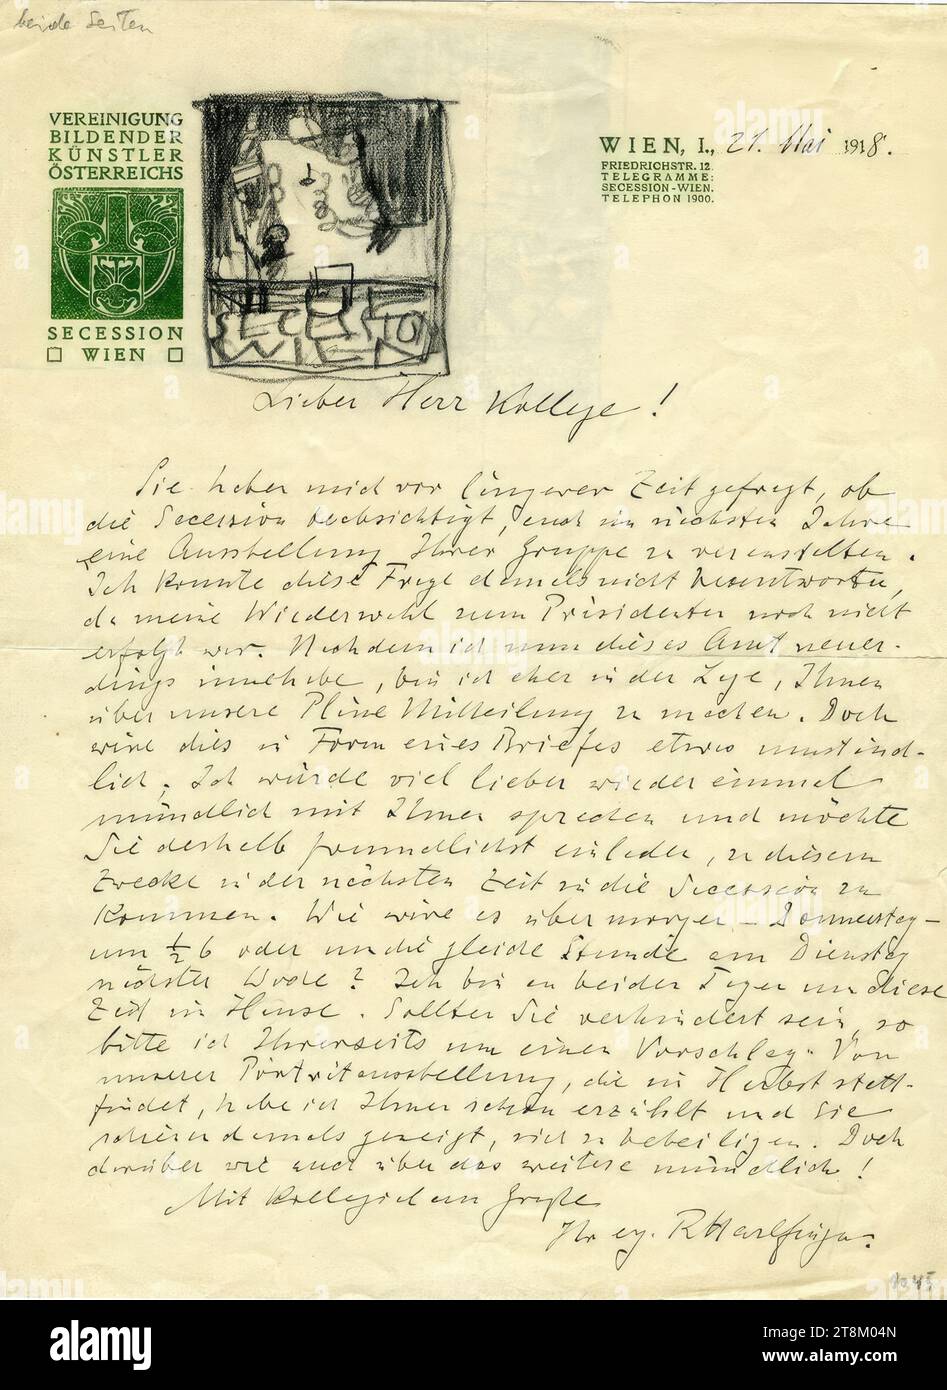 beide Seiten
VEREINIGUNG
BILDENDER
KÜNSTLER
ÖSTERREICHS
SECESSION
WIEN
SECESSIO
WIEN
WIEN, I., 21. Mai 1918.
FRIEDRICHSTR. 12.
TELEGRAMME:
SECESSION-WIEN.
TELEPHON 1900.
Lieber Herr Kollege!
Sie haben mich vor längerer Zeit gefragt, ob
die Secession beabsichtigt, auch im nächsten Jahre
eine Ausstellung Ihrer Gruppe zu veranstalten.
Ich konnte diese Frage damals nicht beantworten,
da meine Wiederwahl zum Präsidenten noch nicht
erfolgt war. Nachdem ich nun dieses Amt neuer-
dings innehabe, bin ich eher in der Lage, Ihnen
über unsere Pläne Mitteilung zu machen. Doch
wäre dies in Form eines Briefes etwas umständ-
lich. Ich würde viel lieber wieder einmal
mündlich mit Ihnen sprechen und möchte
Sie deshalb freundlichst einladen, zu diesem
Zwecke in der nächsten Zeit in die Secession zu
kommen. Wie wäre es übermorgen – Donnerstag –
um ½ 6 oder um die gleiche Stunde am Dienstag
nächster Woche? Ich bin an beiden Tagen um diese
Zeit im Hause. Sollten Sie verhindert sein, so
bitte ich Ihrerseits um einen Vorschlag. Von
unserer Porträtausstellung, die im Herbst statt-
findet, habe ich Ihnen schon erzählt und Sie
schienen damals geneigt, sich zu beteiligen. Doch
darüber wie auch über das weitere mündlich!
Mit kollegialem Gruße
Ihr erg. RHarlfinger
1045
alamy
Image ID: 2T8M04N
www.alamy.com